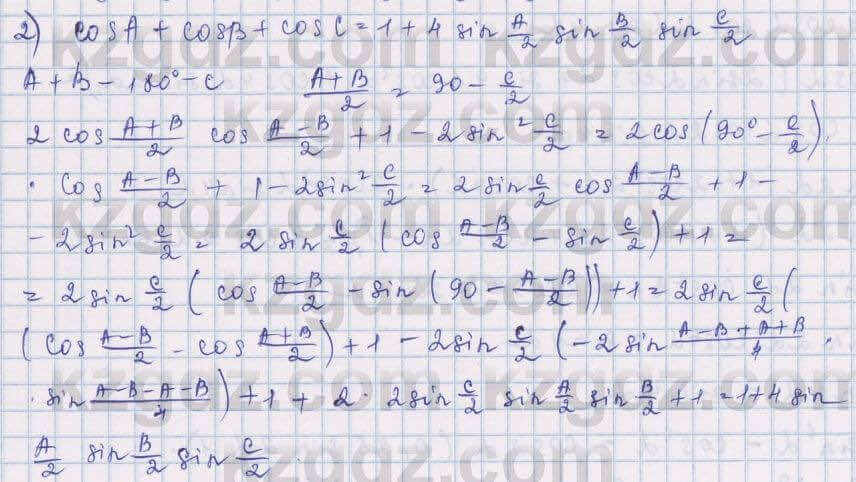 2) cosA + cosB + cosC = 1 + 4 sin A/2 sin B/2 sin C/2
A + B - 180° - C    (A+B)/2 = 90 - C/2
2 cos (A+B)/2 cos (A-B)/2 + 1 - 2 sin² C/2 = 2cos(90° - C/2) ·
· cos (A-B)/2 + 1 - 2sin² C/2 = 2 sin C/2 cos (A-B)/2 + 1 -
- 2 sin² C/2 = 2 sin C/2 (cos (A-B)/2 - sin C/2) + 1 =
= 2 sin C/2 (cos (A-B)/2 - sin (90 - (A-B)/2)) + 1 = 2 sin C/2 (
(cos (A-B)/2 - cos (A+B)/2) + 1 - 2 sin C/2 (-2 sin (A-B+A+B)/4 ·
· sin (A-B-A-B)/4) + 1 + 2 · 2 sin C/2 sin A/2 sin B/2 + 1 = 1 + 4 sin
A/2 sin B/2 sin C/2 .
kzgdz.com